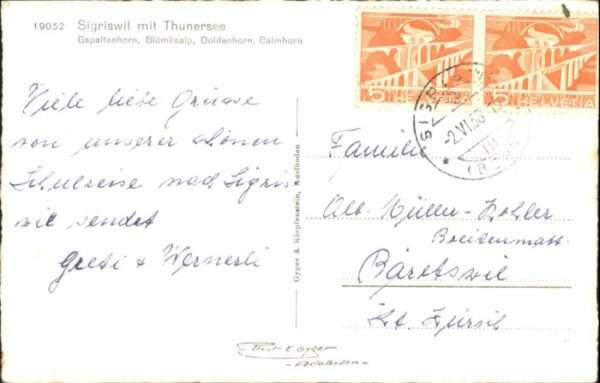 19052 Sigriswil mit Thunersee
Gspaltenhorn, Blümlisalp, Doldenhorn, Balmhorn
Viele liebe Grüsse
von unserer schönen
Schulreise nach Sigris
wil sendet
Greti + Wernerli
Gyger & Klopfenstein, Adelboden
5 HELVETIA 5 HELVETIA
SIGRISWIL
-2.VI.50
(BERN)
Familie
Alb. Müller-Kohler
Breitenmatt
Bäretswil
Kt. Zürich
Adelboden